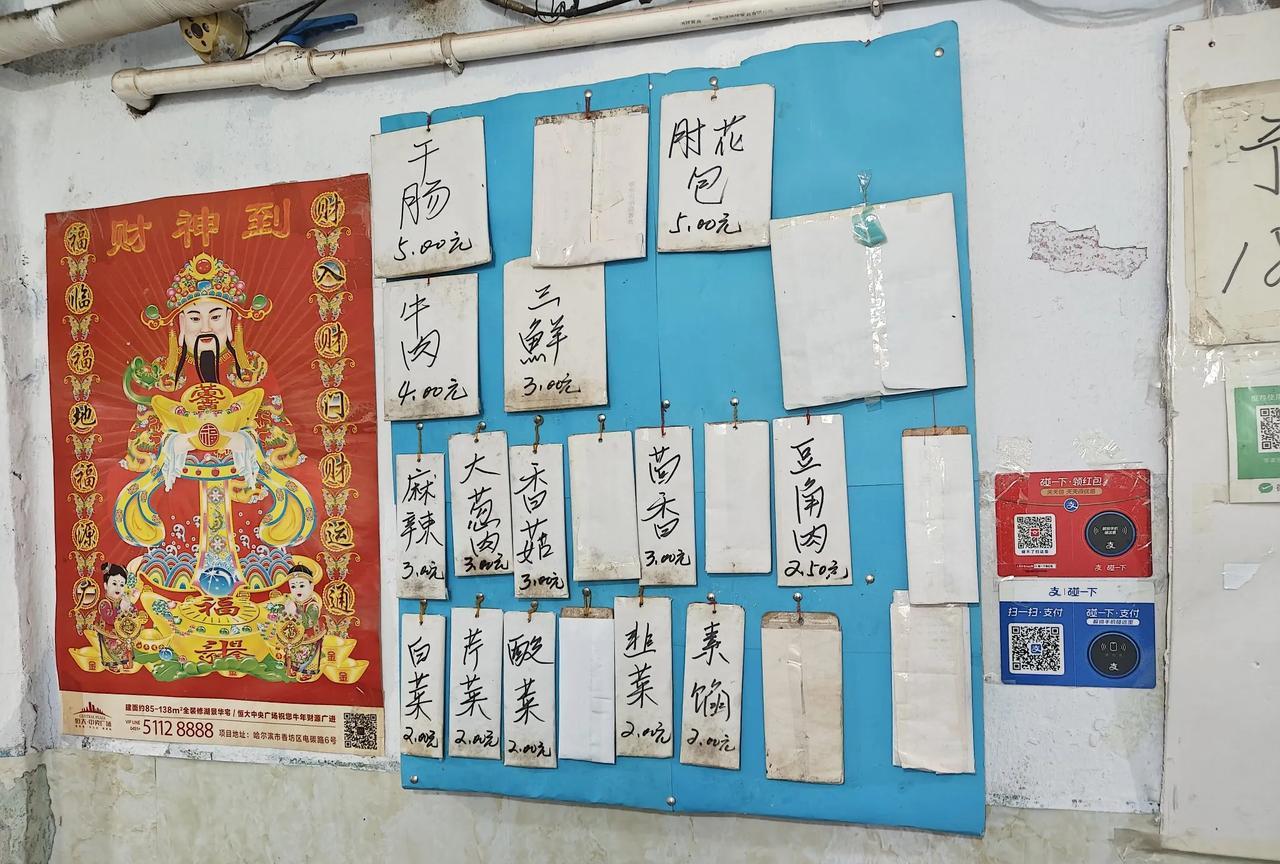 财神到
福临福地福源广
财入财门财运通
建面约85-138m²全装修湖景华宅 / 恒大中央广场祝您牛年财源广进
恒大·中央广场
VIP LINE
0451-
5112 8888
项目地址：哈尔滨市香坊区电碳路6号
干肠
5.00元
肘花包
5.00元
牛肉
4.00元
三鮮
3.00元
麻辣
3.00元
大葱肉
3.00元
香菇
3.00元
茴香
3.00元
豆角肉
2.50元
白菜
2.00元
芹菜
2.00元
酸菜
2.00元
韭菜
2.00元
素馅
2.00元
碰一下·领红包
支 碰一下
支 碰一下
扫一扫·支付
碰一下·支付
解锁手机碰这里